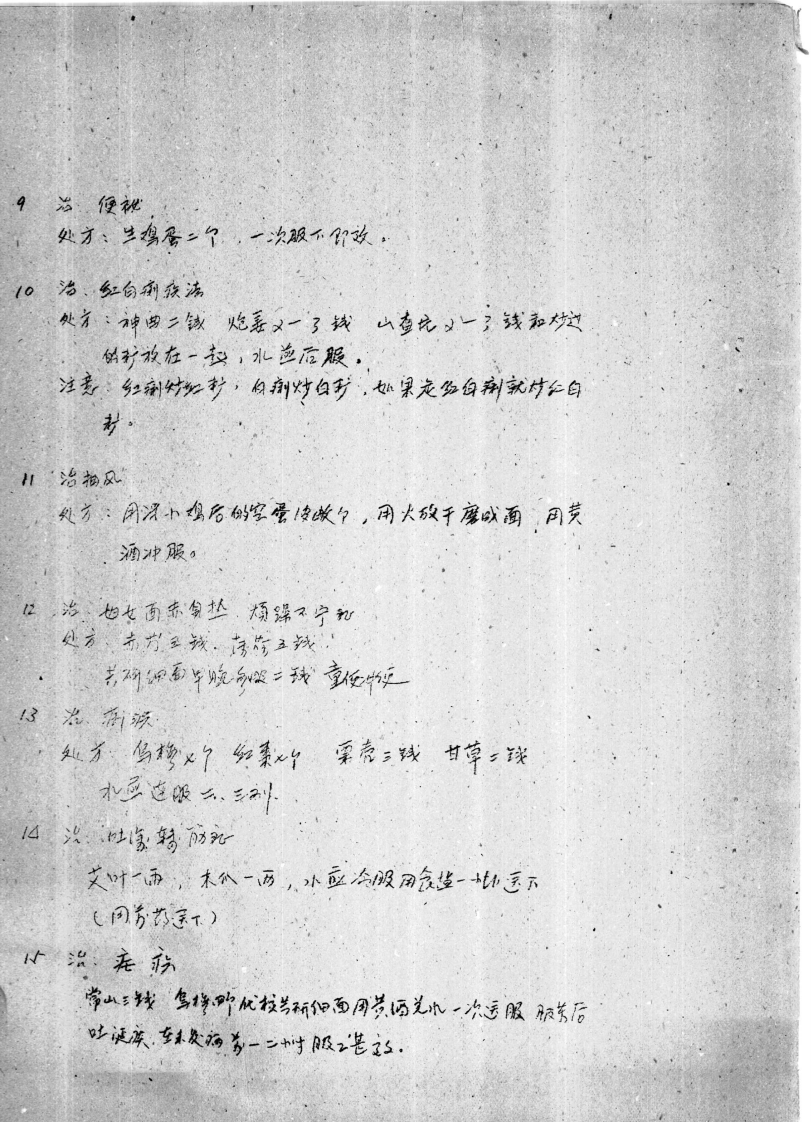 9 治 便秘
处方：生鸡蛋二个，一次服下即效。
10 治、红白痢疾法
处方：神曲二钱 炮姜 一 钱 山查 一 钱和炒过
的 放在一起，水煎后服。
注意 红痢炒红 ，白痢炒白 ，如果是红白痢就炒红白
。
11 治抽风
处方：用 小鸡后的空蛋皮 个，用火 干磨成面，用黄
酒冲服。
12 治 妇女面赤身热 烦躁不宁症
处方、赤芍五钱、 五钱
共研细面早晚 服二钱 童便冲
13 治 痢疾
处方 乌梅 个 红枣 个 粟壳三钱 甘草二钱
水煎连服二、三剂
14 治、吐泻转筋症
艾叶一两，木瓜一两，水煎冷服用食盐一 送下
（同前药送下）
15 治、疟疾
常山三钱 乌梅 共研细面用黄酒兑水一次送服 服药后
吐涎痰，在未发病前一二小时服之甚效。